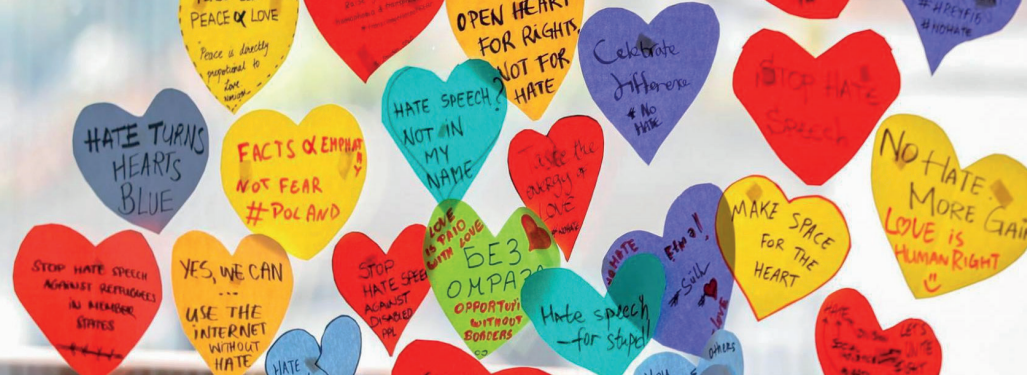 PEACE & LOVE
Peace is directly
proportional to
love
OPEN HEART
FOR RIGHTS,
NOT FOR
HATE
Celebrate
difference
# NO
HATE
#NOHATE
STOP HATE
Speech
HATE SPEECH?
NOT IN
MY
NAME
HATE TURNS
HEARTS
BLUE
FACTS & EMPHATHY
NOT FEAR
#POLAND
Taste the
ENERGY of
LOVE
NO HATE
MORE Gain
LOVE is
HUMAN RIGHT
MAKE SPACE
FOR THE
HEART
STOP HATE SPEECH
AGAINST REFFUGEES
IN MEMBER
STATES
YES, WE CAN
...
USE THE
INTERNET
WITHOUT
HATE
STOP
HATE SPEECH
AGAINST
DISABLED
PPL
LOVE
IS PAID
WITH LOVE
БЕЗ
ОМРАЗА
OPPORTUNI
WITHOUT
BORDERS
NO HATE
Still
LOVE
Hate speech
for stupid
HATE
YOU
OTHERS
LET'S